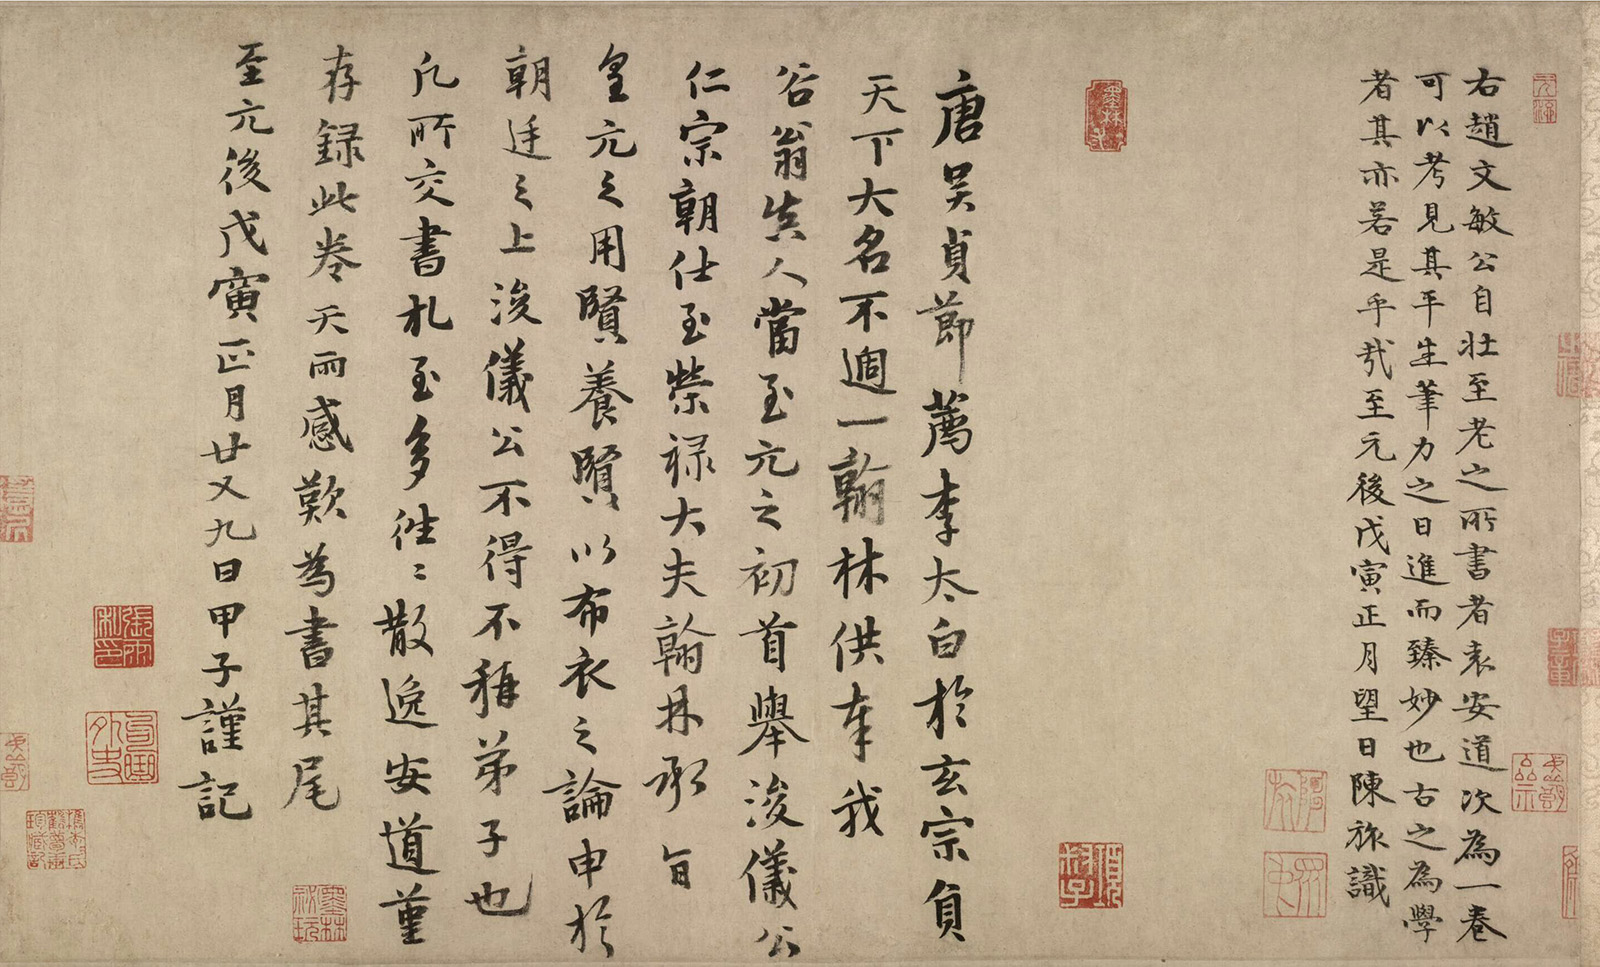 右趙文敏公自壯至老之所書者袁安道次為一卷
可以考見其平生筆力之日進而臻妙也古之為學
者其亦若是乎哉至元後戊寅正月望日陳旅識
唐吴貞節薦李太白於玄宗負
天下大名不過一翰林供奉我
谷翁真人當至元之初首舉浚儀公
仁宗朝仕至榮禄大夫翰林承旨
皇元之用賢養賢以布衣之論申於
朝廷之上浚儀公不得不稱弟子也
凡所交書札至多往〻散逸安道堇
存録此卷天雨感歎為書其尾
至元後戊寅正月廿又九日甲子謹記